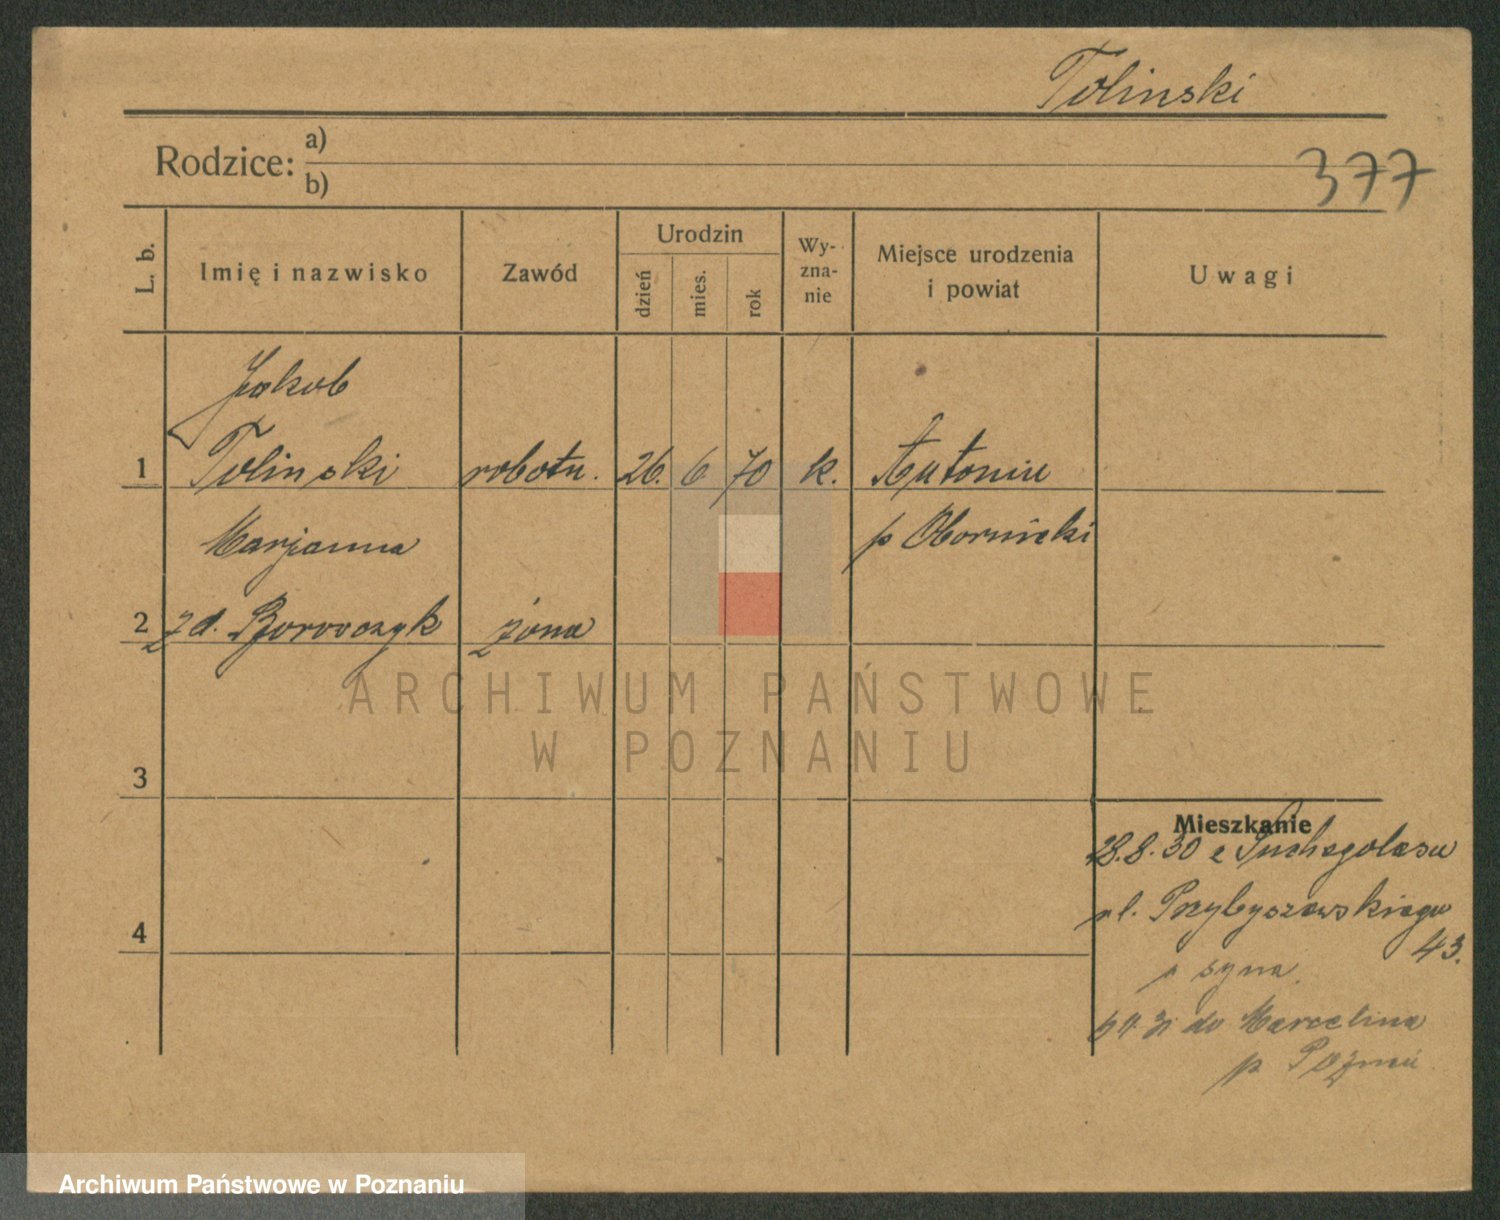 Tolinski
Rodzice: a)
b)
377
L. b.
Imię i nazwisko
Zawód
Urodzin
dzień
mies.
rok
Wy-
zna-
nie
Miejsce urodzenia
i powiat
Uwagi
Jakob
1 Tolinski robotn. 26. 6 70 k. Antonin
Marjanna p Obornicki
2 zd. Borowczyk żona
3
4
Mieszkanie
28.8.30 z Suchegolasu
ul. Przybyszewskiego
43.
syna
do Marcelina
p Poznań
ARCHIWUM PAŃSTWOWE
W POZNANIU
Archiwum Państwowe w Poznaniu